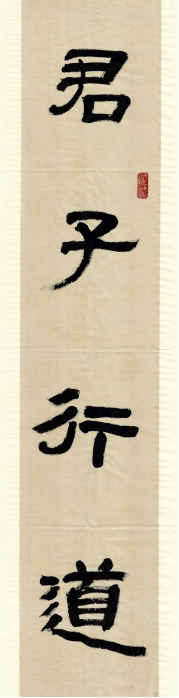 君子行道